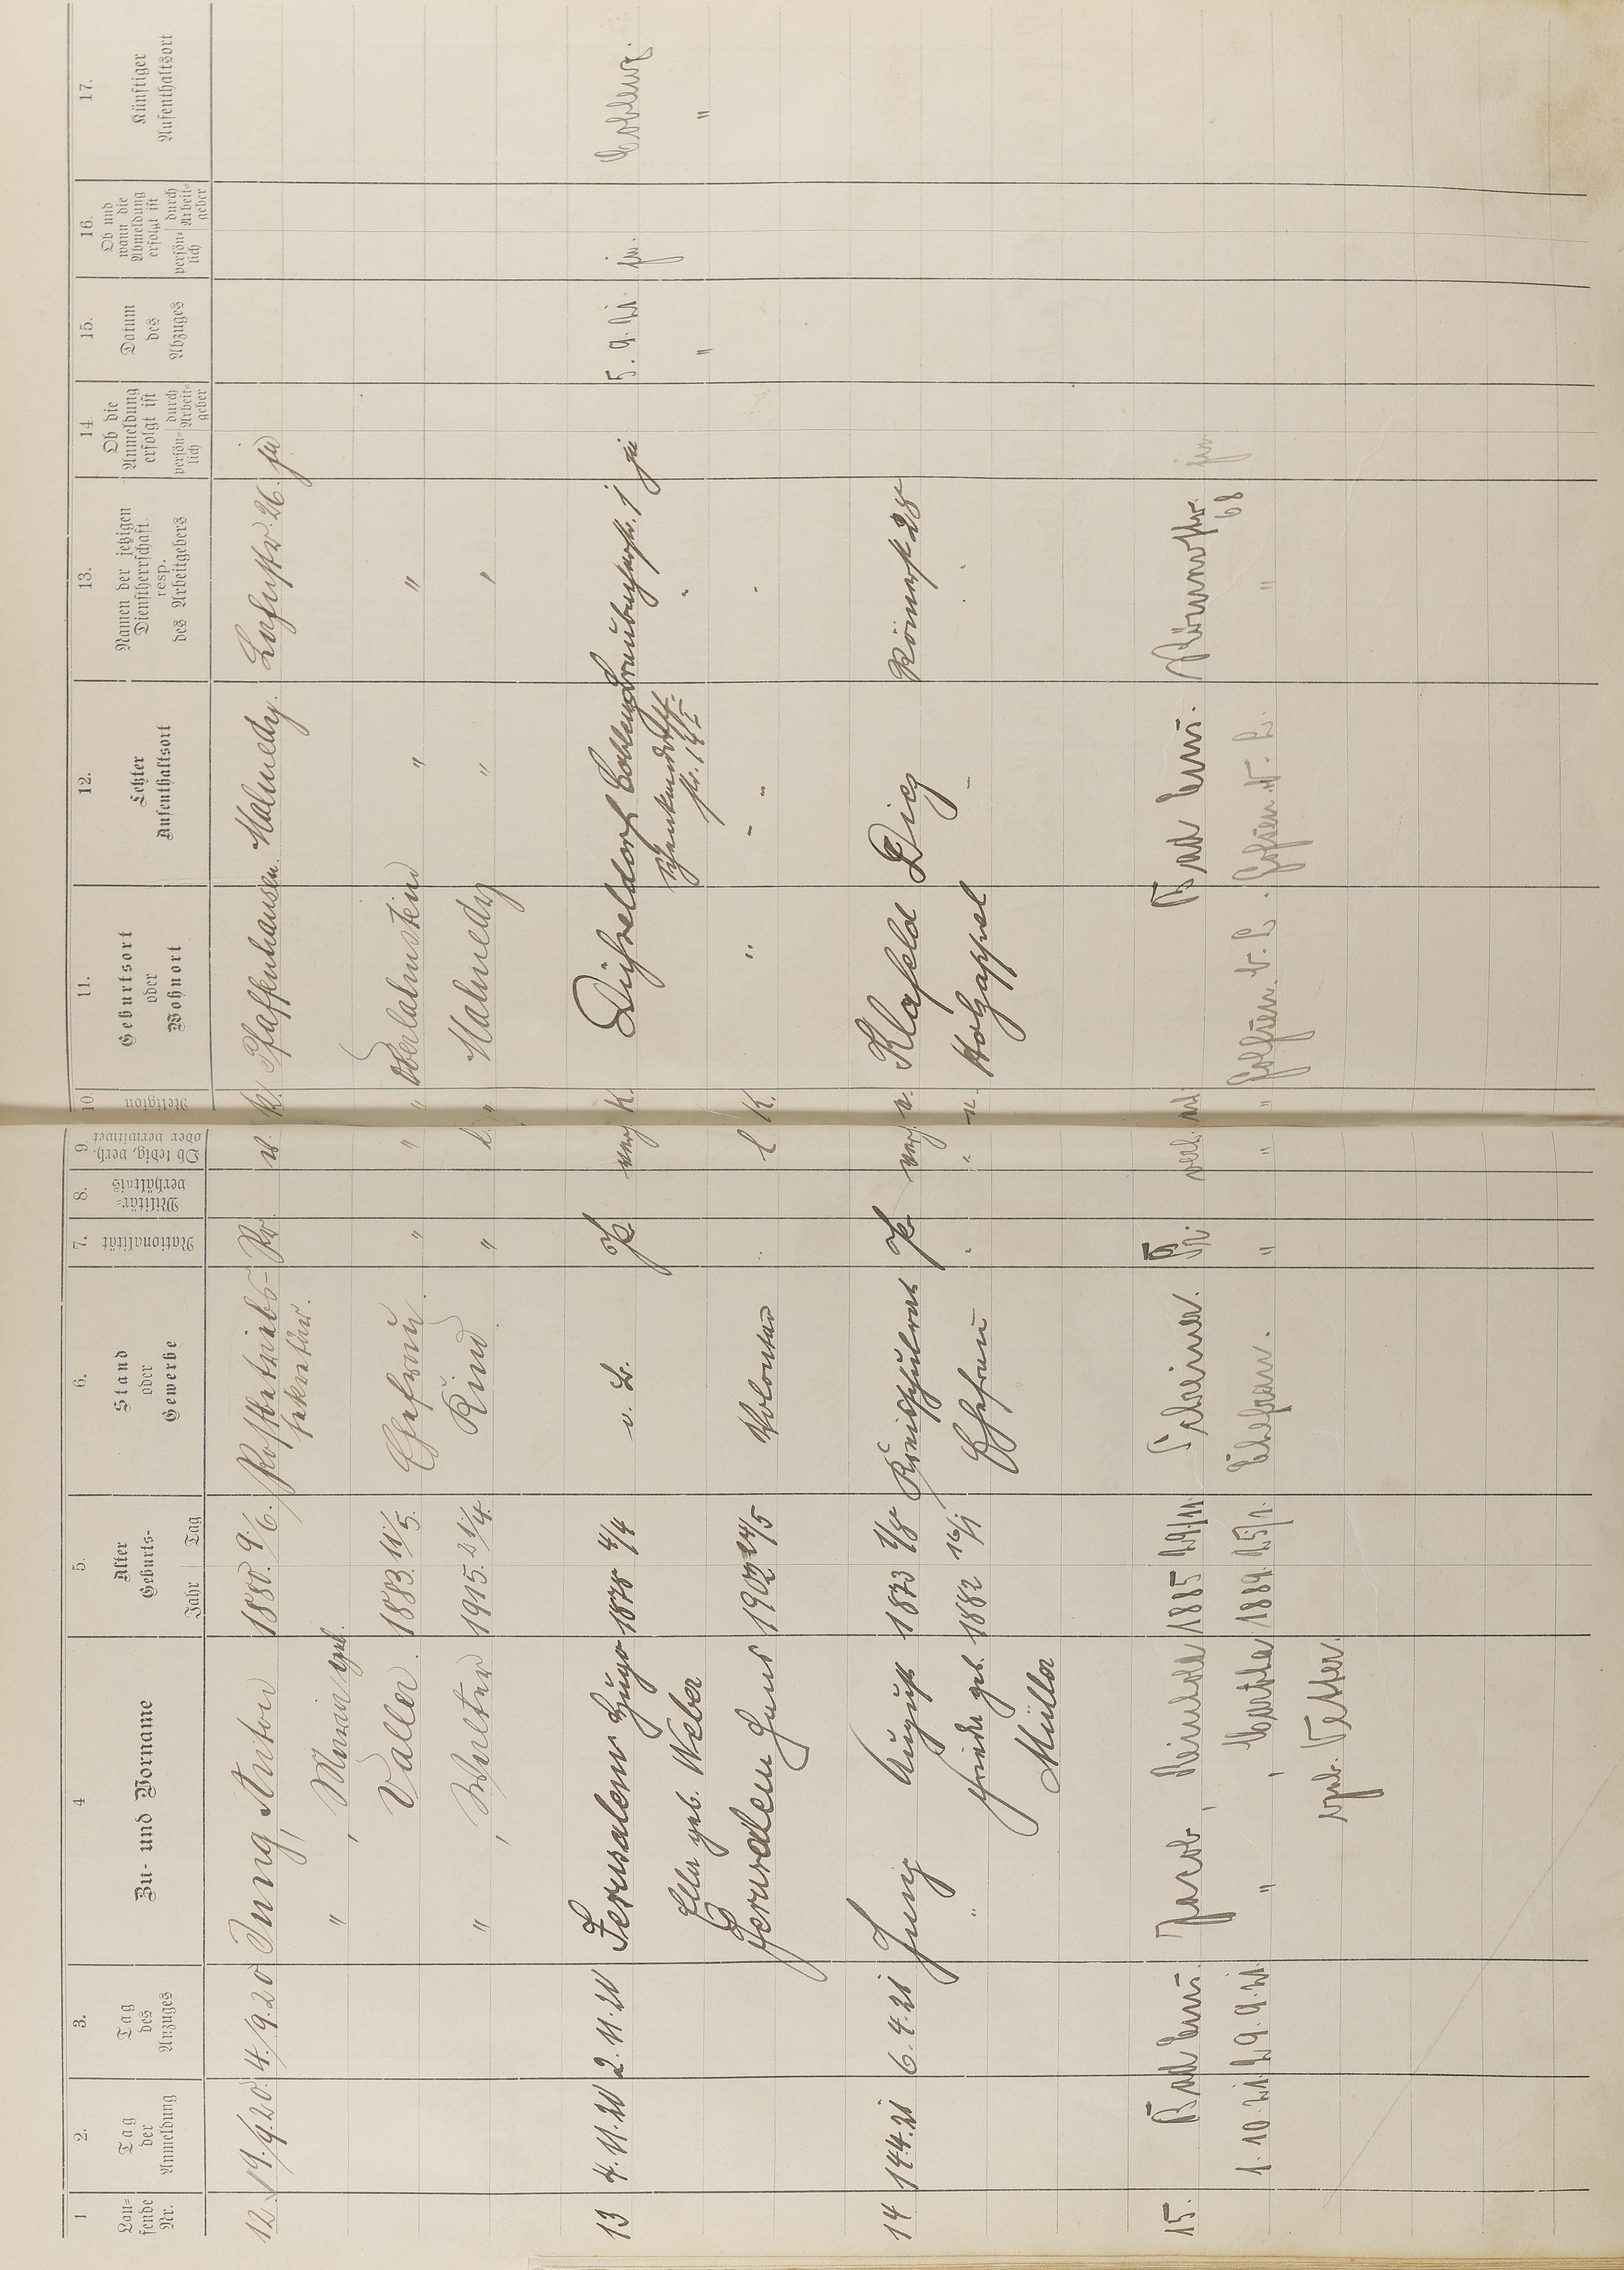 1 2. 3. 4 5. 6. 7. 8. 9. 10. 11. 12. 13. 14. 15. 16. 17.
Lau-
fende
Nr.
Tag
der
Anmeldung
Tag
des
Anzuges
Zu- und Vorname
Alter
Geburts-
Jahr Tag
Stand
oder
Gewerbe
Nationalität
Militär-
verhältnis
Ob ledig, verh.
oder verwitwet
Religion
Geburtsort
oder
Wohnort
Letzter
Aufenthaltsort
Namen der jetzigen
Dienstherrschaft
resp.
des Arbeitgebers
Ob die
Anmeldung
erfolgt ist
persön-
lich
durch
Arbeit-
geber
Datum
des
Abzuges
Ob und
wann die
Abmeldung
erfolgt ist
persön-
lich
durch
Arbeit-
geber
Künftiger
Aufenthaltsort
12. 19./9.20. 4./9.20 Jung, Anton 1880. 9./6. Postbetriebs- Pr. K. Pfaffenhausen Malmedy. Lahnstr. 26. ja
sekretär.
" , Maria geb.
Valler. 1883. 11/5. Ehefrau. " " " Oberlahnstein " "
" , Walter 1915. 21/4. Kind. " l. " Malmedy " "
13 4.11.20 2.11.20 Jerusalem Hugo 1878 4/4 v. B. Pr verh K. Düsseldorf Coblenz 1 ja 5.9.21. ja. Coblenz.
Ella geb. Weber " "
Jerusalem Hans 1902 24/5 Volontär " l K. " " "
14 14.4.21 6.4.21 Jung August 1873 Kreisschulrat Pr verh. e. Klafeld Diez Römerst 28
" Frieda geb. 1882 16/1 Ehefrau " " e. Holzappel " "
Müller
15. Bad Ems. Jacob, Reinhold 1885 29/11. Schreiner. Pr. verh. Bad Ems. Römerstr. ja
68
1.10.21. 29.9.21. " , Martha 1889. 25/1. Ehefrau. " " " "
geb. Vetter.